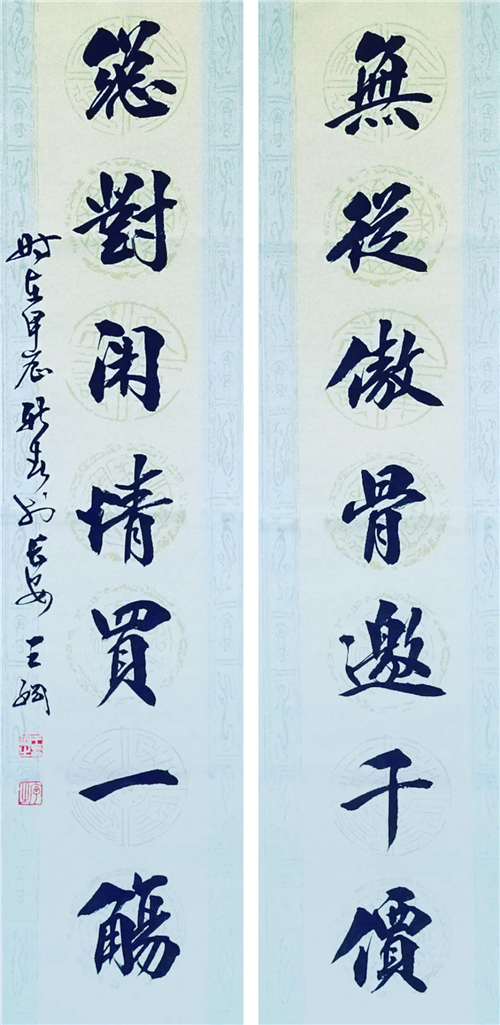 無從傲骨邀千價
總對閑情買一觴
时在甲辰新春於長安 王